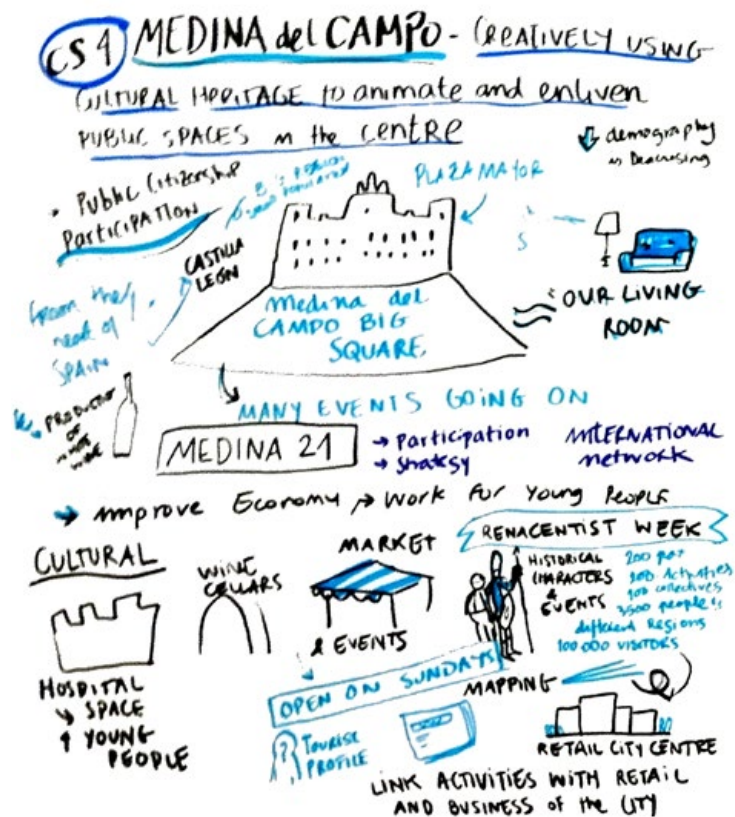 CS 1 MEDINA del CAMPO - CREATIVELY USING
CULTURAL HERITAGE to animate and enliven
PUBLIC SPACES in the centre
demography
is Decreasing
• Public Citizenship
PARTICIPATION
PLAZA MAYOR
CASTILLA
LEÓN
from the
rest of
SPAIN
Medina del
CAMPO BIG
SQUARE
OUR LIVING
ROOM
PRODUCTION
OF
WINE
MANY EVENTS GOING ON
MEDINA 21
→ Participation
→ Strategy
INTERNATIONAL
network
→ improve Economy → Work for Young People
CULTURAL
HOSPITAL
↘ SPACE
↑ YOUNG
PEOPLE
WINE
CELLARS
MARKET
& EVENTS
RENACENTIST WEEK
HISTORICAL
CHARACTERS
&
EVENTS
200
Activities
collectives
3,500 people
different Regions
100 000 VISITORS
OPEN ON SUNDAYS
?
TOURIST
PROFILE
MAPPING
RETAIL CITY CENTRE
LINK ACTIVITIES WITH RETAIL
AND BUSINESS of the CITY